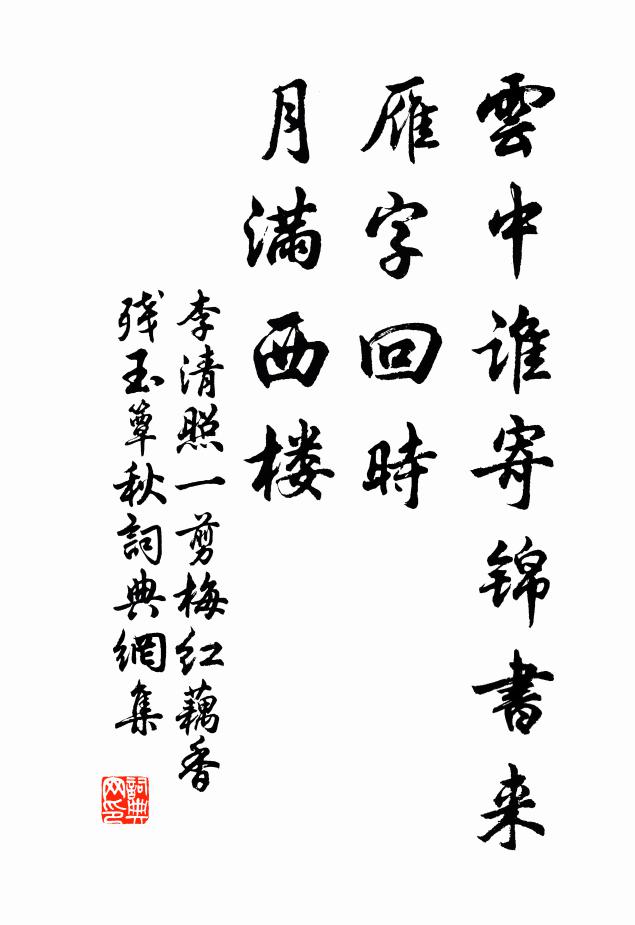 雲中谁寄锦書来
雁字回時
月満西楼
李清照一剪梅红藕香
残玉簟秋詞典網集
詞典网印